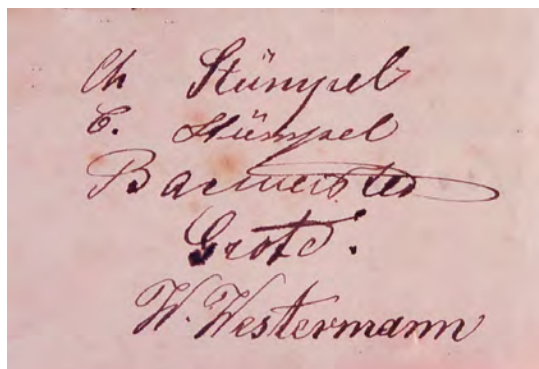 Ch Stümpel
C. Stümpel
Barmeister
Grote.
W. Westermann